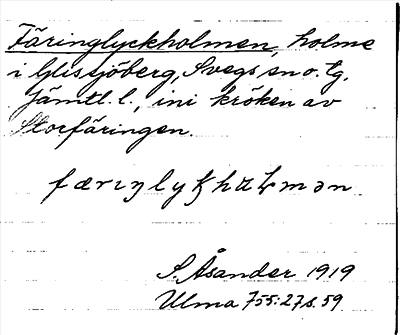 Färinglyckholmen, holme
i Glissjöberg, Svegs sn o. tg,
Jämtl. l., ini kröken av
Storfäringen.
færıŋlykhɷLmən
S. Åsander 1919
Ulma 755:27 s. 59